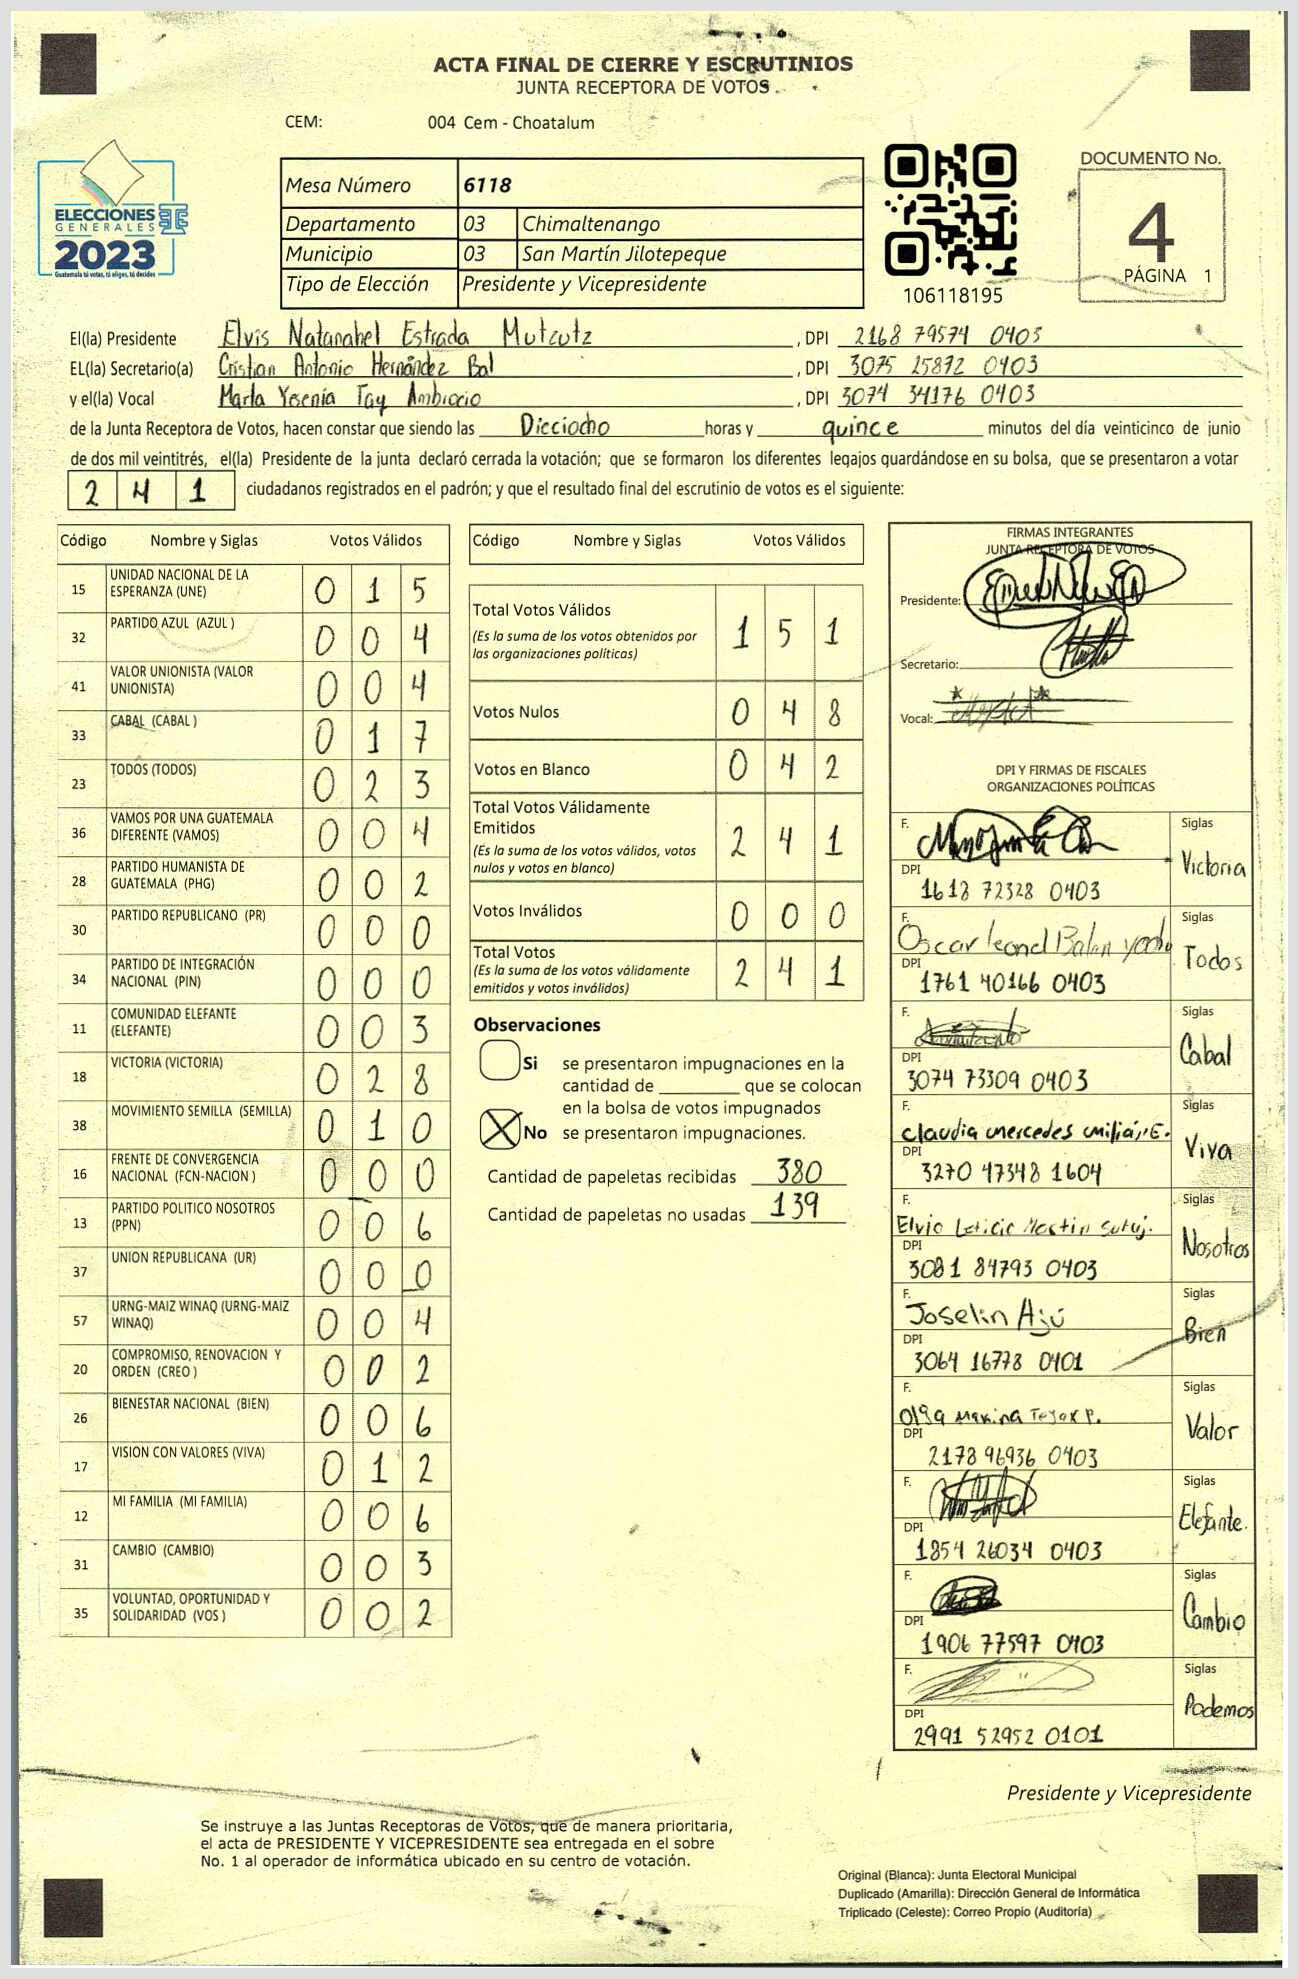 ACTA FINAL DE CIERRE Y ESCRUTINIOS
JUNTA RECEPTORA DE VOTOS
CEM: 004 Cem - Choatalum
ELECCIONES
GENERALES
2023
Guatemala tú votas, tú eliges, tú decides
Mesa Número 6118
Departamento 03 Chimaltenango
Municipio 03 San Martín Jilotepeque
Tipo de Elección Presidente y Vicepresidente
106118195
DOCUMENTO No.
4
PÁGINA 1
El(la) Presidente Elvis Natanahel Estrada Mutzutz , DPI 2168 79574 0403
EL(la) Secretario(a) Cristian Antonio Hernández Bal , DPI 3075 25872 0403
y el(la) Vocal Marla Yesenia Tay Ambrocio , DPI 3074 34176 0403
de la Junta Receptora de Votos, hacen constar que siendo las Dieciocho horas y quince minutos del día veinticinco de junio
de dos mil veintitrés, el(la) Presidente de la junta declaró cerrada la votación; que se formaron los diferentes legajos guardándose en su bolsa, que se presentaron a votar
2 4 1 ciudadanos registrados en el padrón; y que el resultado final del escrutinio de votos es el siguiente:
Código Nombre y Siglas Votos Válidos
15 UNIDAD NACIONAL DE LA ESPERANZA (UNE) 0 1 5
32 PARTIDO AZUL (AZUL ) 0 0 4
41 VALOR UNIONISTA (VALOR UNIONISTA) 0 0 4
33 CABAL (CABAL ) 0 1 7
23 TODOS (TODOS) 0 2 3
36 VAMOS POR UNA GUATEMALA DIFERENTE (VAMOS) 0 0 4
28 PARTIDO HUMANISTA DE GUATEMALA (PHG) 0 0 2
30 PARTIDO REPUBLICANO (PR) 0 0 0
34 PARTIDO DE INTEGRACIÓN NACIONAL (PIN) 0 0 0
11 COMUNIDAD ELEFANTE (ELEFANTE) 0 0 3
18 VICTORIA (VICTORIA) 0 2 8
38 MOVIMIENTO SEMILLA (SEMILLA) 0 1 0
16 FRENTE DE CONVERGENCIA NACIONAL (FCN-NACION ) 0 0 0
13 PARTIDO POLITICO NOSOTROS (PPN) 0 0 6
37 UNION REPUBLICANA (UR) 0 0 0
57 URNG-MAIZ WINAQ (URNG-MAIZ WINAQ) 0 0 4
20 COMPROMISO, RENOVACION Y ORDEN (CREO ) 0 0 2
26 BIENESTAR NACIONAL (BIEN) 0 0 6
17 VISION CON VALORES (VIVA) 0 1 2
12 MI FAMILIA (MI FAMILIA) 0 0 6
31 CAMBIO (CAMBIO) 0 0 3
35 VOLUNTAD, OPORTUNIDAD Y SOLIDARIDAD (VOS ) 0 0 2
Código Nombre y Siglas Votos Válidos
Total Votos Válidos 1 5 1
(Es la suma de los votos obtenidos por
las organizaciones políticas)
Votos Nulos 0 4 8
Votos en Blanco 0 4 2
Total Votos Válidamente
Emitidos 2 4 1
(Es la suma de los votos válidos, votos
nulos y votos en blanco)
Votos Inválidos 0 0 0
Total Votos 2 4 1
(Es la suma de los votos válidamente
emitidos y votos inválidos)
Observaciones
Si se presentaron impugnaciones en la
cantidad de ________ que se colocan
en la bolsa de votos impugnados
X No se presentaron impugnaciones.
Cantidad de papeletas recibidas 380
Cantidad de papeletas no usadas 139
FIRMAS INTEGRANTES
JUNTA RECEPTORA DE VOTOS
Presidente:
Secretario:
Vocal:
DPI Y FIRMAS DE FISCALES
ORGANIZACIONES POLÍTICAS
F. Siglas
DPI Victoria
1618 72328 0403
F. Oscar Leonel Balan Siglas
DPI Todos
1761 40166 0403
F. Siglas
DPI Cabal
3074 73309 0403
F. Siglas
Claudia Mercedes
DPI Viva
3270 47348 1604
F. Siglas
Elvia Leticia Martin
DPI Nosotros
3081 84793 0403
F. Siglas
Joselin Ajú
DPI Bien
3064 16778 0401
F. Siglas
Olga Marina P.
DPI Valor
2178 96936 0403
F. Siglas
DPI Elefante.
1854 26034 0403
F. Siglas
DPI Cambio
1906 77597 0403
F. Siglas
DPI Podemos
2991 52952 0101
Presidente y Vicepresidente
Se instruye a las Juntas Receptoras de Votos, que de manera prioritaria,
el acta de PRESIDENTE Y VICEPRESIDENTE sea entregada en el sobre
No. 1 al operador de informática ubicado en su centro de votación.
Original (Blanca): Junta Electoral Municipal
Duplicado (Amarilla): Dirección General de Informática
Triplicado (Celeste): Correo Propio (Auditoría)